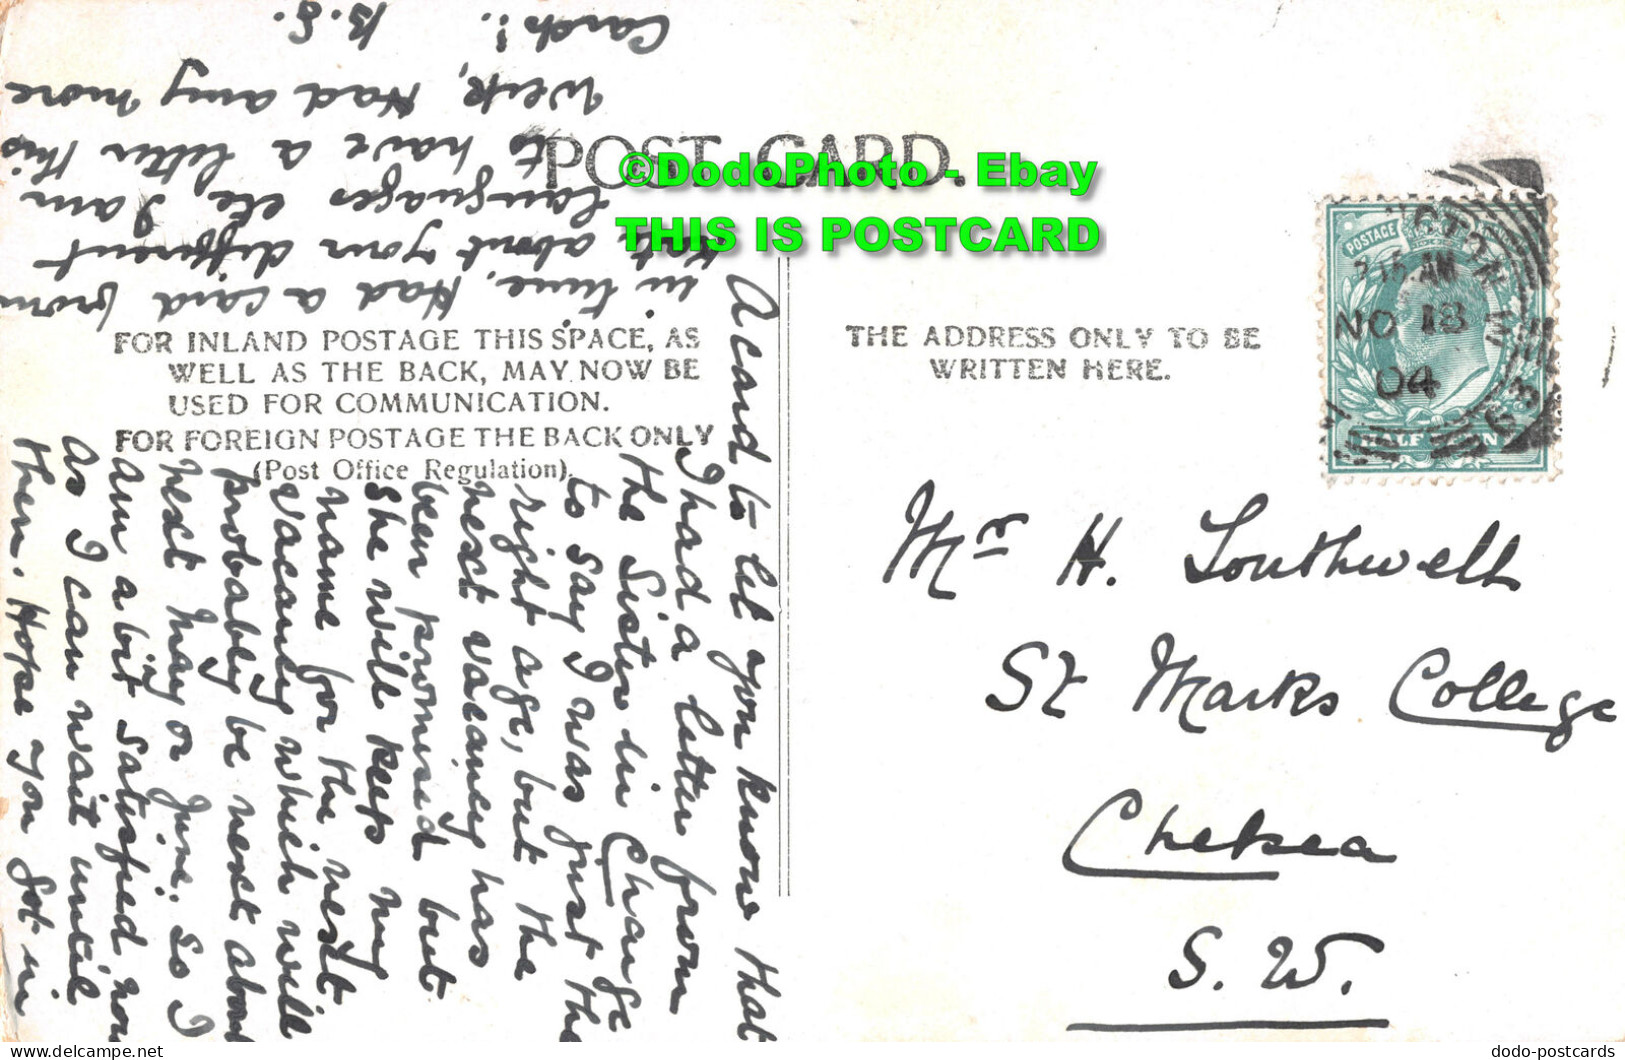 POST CARD.
©DodoPhoto - Ebay
THIS IS POSTCARD
FOR INLAND POSTAGE THIS SPACE, AS
WELL AS THE BACK, MAY NOW BE
USED FOR COMMUNICATION.
FOR FOREIGN POSTAGE THE BACK ONLY
(Post Office Regulation).
THE ADDRESS ONLY TO BE
WRITTEN HERE.
POSTAGE
CTON
3.15 AM
NO 18
04
HALF PENNY
Mr H. Southwell
St Marks College
Chelsea
S. W.
A card to let you know that
I had a letter from
the Sister in Charge
to say I was just the
right age, but the
next vacancy has
been promised but
she will keep my
name for the next
vacancy which will
probably be next about
next May or June. So I
am a bit satisfied now
as I can wait until
then. Hope you got in
in time. Had a card from
Kate about your different
languages etc I am
to have a letter this
Week, Had any more
Cards?. B. S.
dodo-postcards